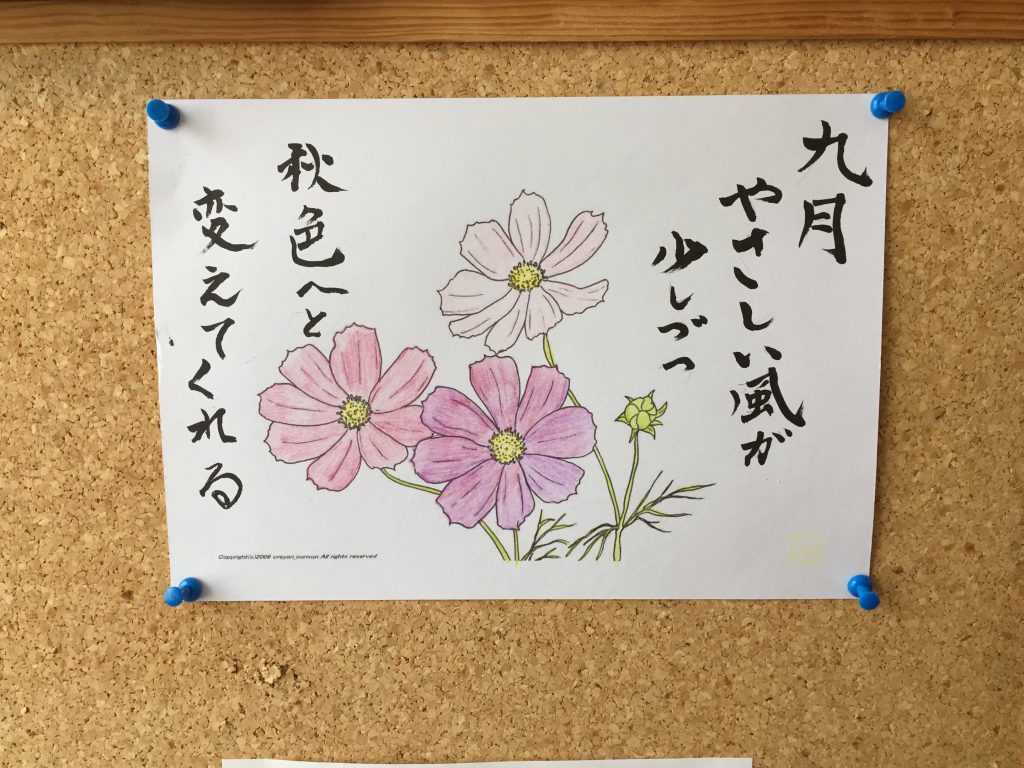 九月
やさしい風が
少しづつ
秋色へと
変えてくれる
Copyright(c)2006 creyon_norisun All rights reserved